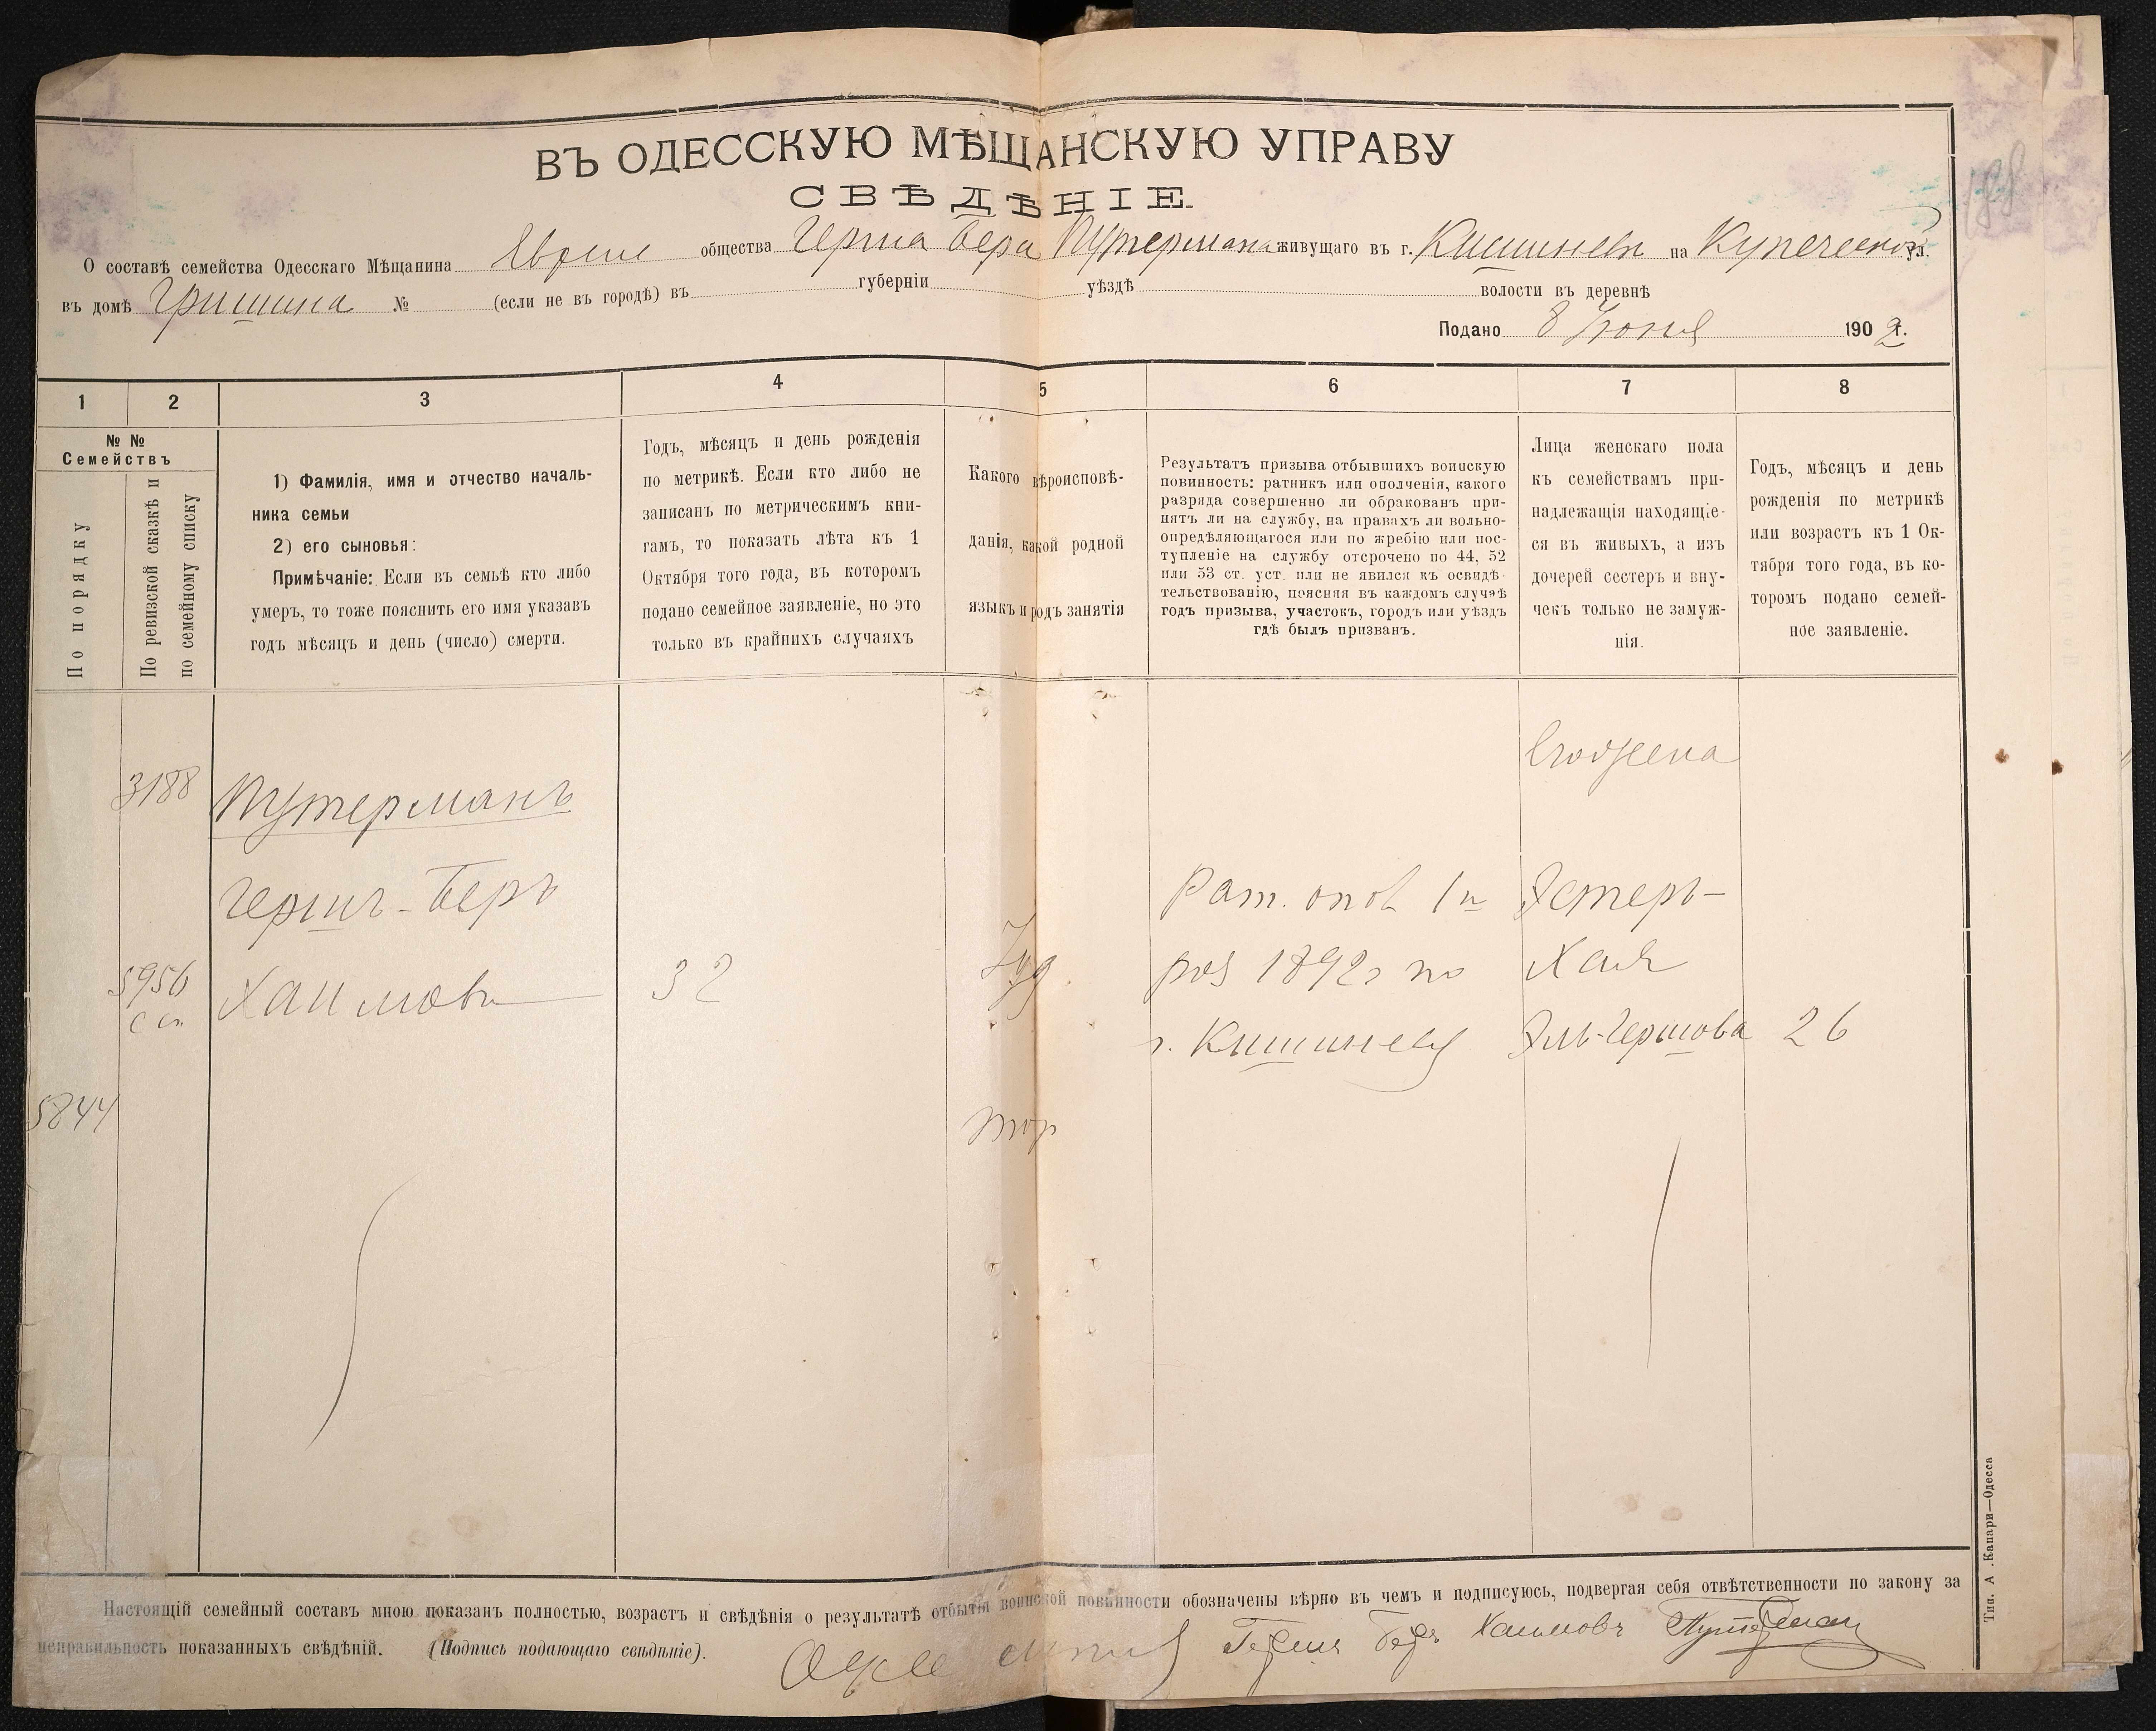 ВЪ ОДЕССКУЮ МѢЩАНСКУЮ УПРАВУ
СВѢДѢНІЕ
О составѣ семейства Одесскаго Мѣщанина Евреис общества Герша Бера Путермана живущаго въ г. Кишиневѣ на Купеческой ул.
въ домѣ Гришина № (если не въ городѣ) въ губерніи уѣздѣ волости въ деревнѣ
Подано 8 Іюня 1902 г.
1 2 3 4 5 6 7 8
№ №
Семействъ
По порядку
По ревизской сказкѣ и
по семейному списку
1) Фамилія, имя и отчество началь-
ника семьи
2) его сыновья:
Примѣчаніе: Если въ семьѣ кто либо
умеръ, то тоже пояснить его имя указавъ
годъ мѣсяцъ и день (число) смерти.
Годъ, мѣсяцъ и день рожденія
по метрикѣ. Если кто либо не
записанъ по метрическимъ кни-
гамъ, то показать лѣта къ 1
Октября того года, въ которомъ
подано семейное заявленіе, но это
только въ крайнихъ случаяхъ
Какого вѣроисповѣ-
данія, какой родной
языкъ и родъ занятія
Результатъ призыва отбывшихъ воинскую
повинность: ратникъ или ополченія, какого
разряда совершенно ли обракованъ при-
нятъ ли на службу, на правахъ ли вольно-
опредѣляющагося или по жребію или пос-
тупленіе на службу отсрочено по 44, 52
или 53 ст. уст. или не явился къ освидѣ-
тельствованію, поясняя въ каждомъ случаѣ
годъ призыва, участокъ, городъ или уѣздъ
гдѣ былъ призванъ.
Лица женскаго пола
къ семействамъ при-
надлежащія находящіе-
ся въ живыхъ, а изъ
дочерей сестеръ и вну-
чекъ только не замуж-
нія.
Годъ, мѣсяцъ и день
рожденія по метрикѣ
или возрастъ къ 1 Ок-
тября того года, въ ко-
торомъ подано семей-
ное заявленіе.
Его жена
3188 Путерманъ
Гершъ-Беръ Рат. опол 1 Эстеръ-
5956 Хаимовъ 32 Іуд. раз 1892 г по Хая
г. Кишиневу Эль-Гершова 26
5844 тор
Настоящій семейный составъ мною показанъ полностью, возрастъ и свѣдѣнія о результатѣ отбытія воинской повинности обозначены вѣрно въ чемъ и подписуюсь, подвергая себя отвѣтственности по закону за
неправильность показанныхъ свѣдѣній. (Подпись подающаго свѣдѣніе).
Гершъ Беръ Хаимовъ Путерман
Тип. А. Капари—Одесса